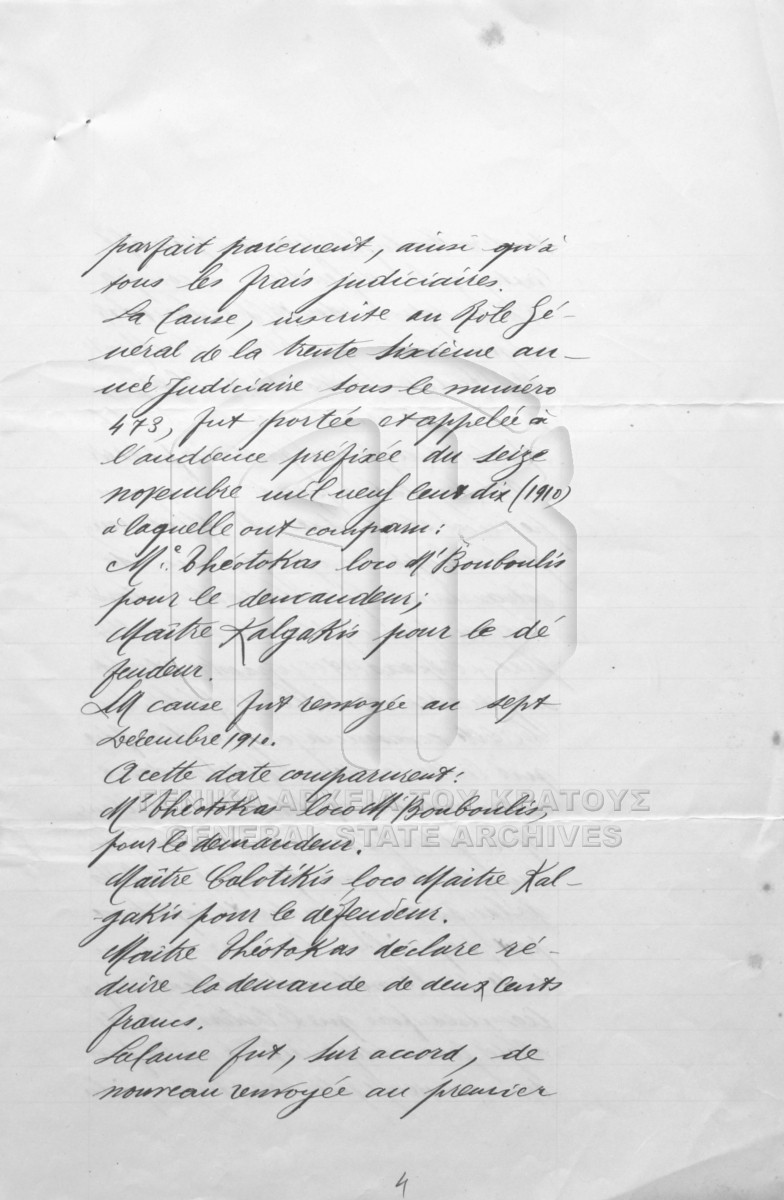 parfait paiement, ainsi qu'à
tous les frais judiciaires.
La Cause, inscrite au Rôle Gé-
néral de la trente sixième an-
née Judiciaire sous le numéro
473, fut portée et appelée à
l'audience préfixée du seize
novembre mil neuf cent dix (1910)
à laquelle ont comparu:
Me. Théotokas loco Me Bouboulis
pour le demandeur;
Maître Kalgakis pour le dé
fendeur.
La cause fut renvoyée au sept
Décembre 1910.
A cette date comparurent:
Me Théotokas loco Me Bouboulis,
pour le demandeur.
ΓΕΝΙΚΑ ΑΡΧΕΙΑ ΤΟΥ ΚΡΑΤΟΥΣ
GENERAL STATE ARCHIVES
Maître Calotikis loco Maitre Kal-
-gakis pour le défendeur.
Maître Théotokas déclare ré-
duire la demande de deux Cents
francs.
La Cause fut, sur accord, de
nouveau renvoyée au premier
4